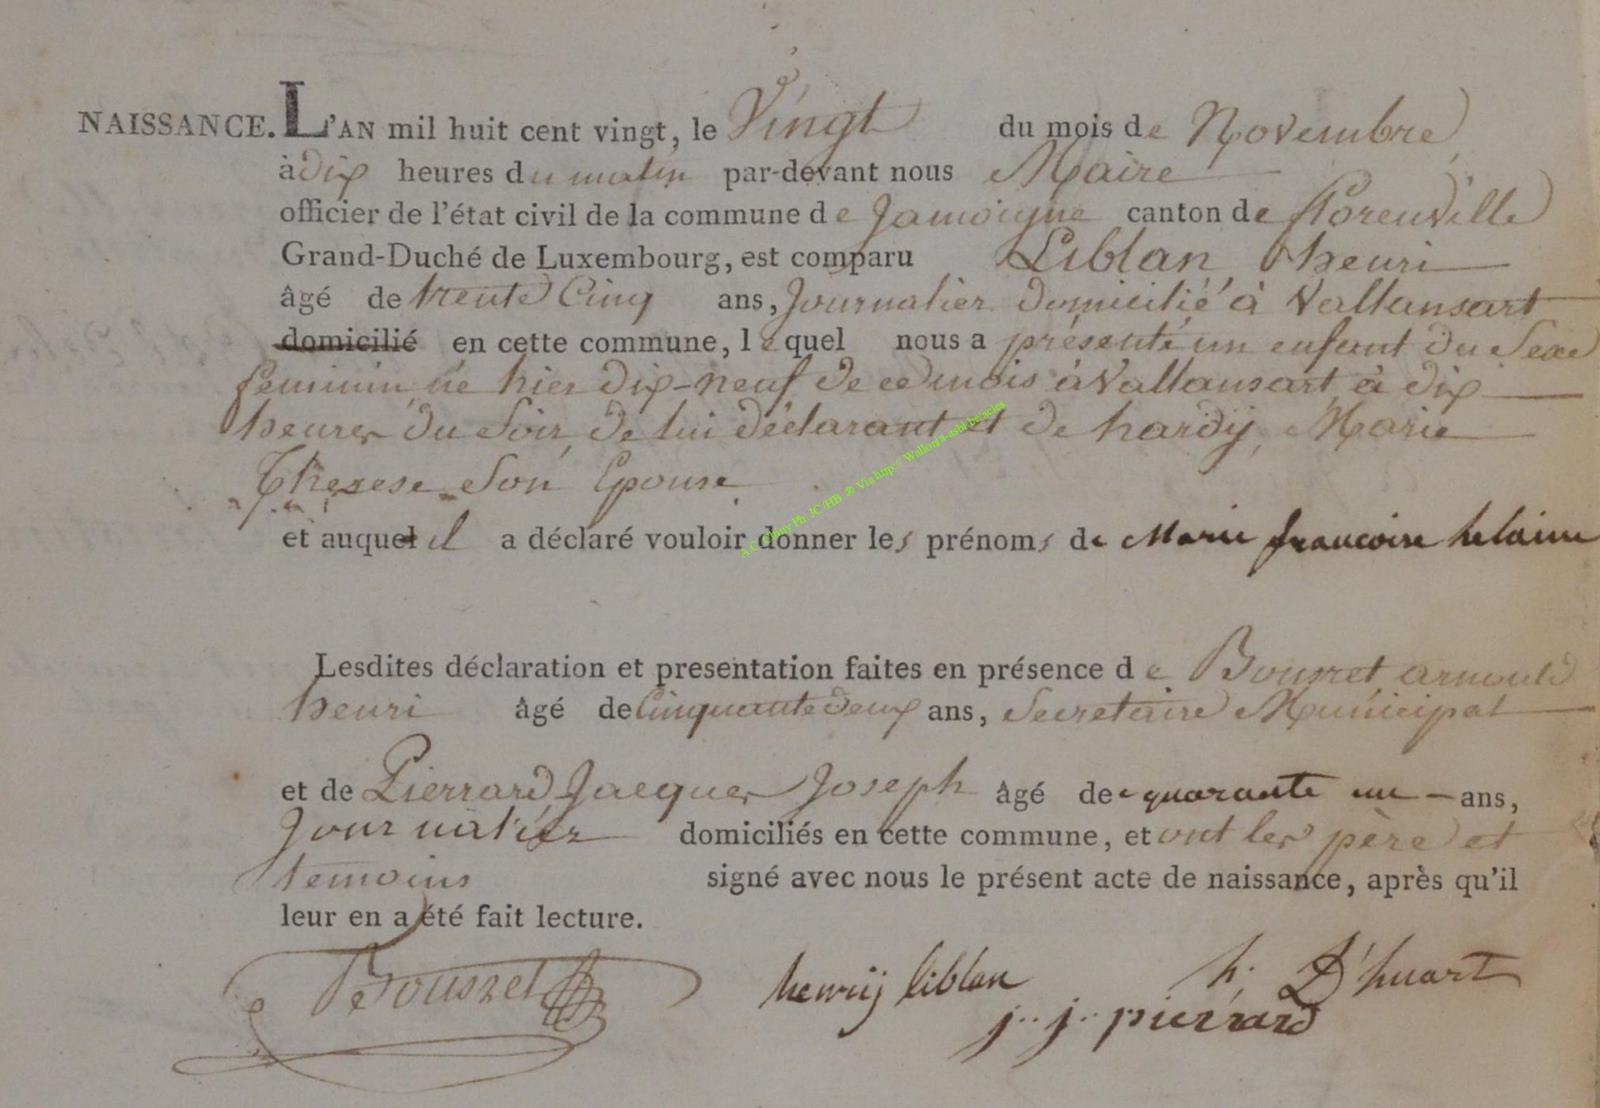 NAISSANCE. L'AN mil huit cent vingt, le Vingt du mois de Novembre
à dix heures du matin par-devant nous Maire
officier de l'état civil de la commune de Jamoigne canton de florenville
Grand-Duché de Luxembourg, est comparu Liblan henri
âgé de trente Cinq ans, Journalier domicilié à Vallansart
domicilié en cette commune, lequel nous a présenté un enfant du Sexe
feminin, né hier dix-neuf de ce mois à Vallansart, à dix
heures du Soir, de lui déclarant et de hardij, Marie
Therese Son Epouse
et auquel il a déclaré vouloir donner les prénoms de Marie francoise helaine
Lesdites déclaration et presentation faites en présence de arnould
henri âgé de Cinquante deux ans, Secretaire Municipal
et de Pierrard Jacques Joseph âgé de quarante un ans,
Journalier domiciliés en cette commune, et ont les père et
temoins signé avec nous le présent acte de naissance, après qu'il
leur en a été fait lecture.
henrij liblan h. D'huart
j. j. pierrard